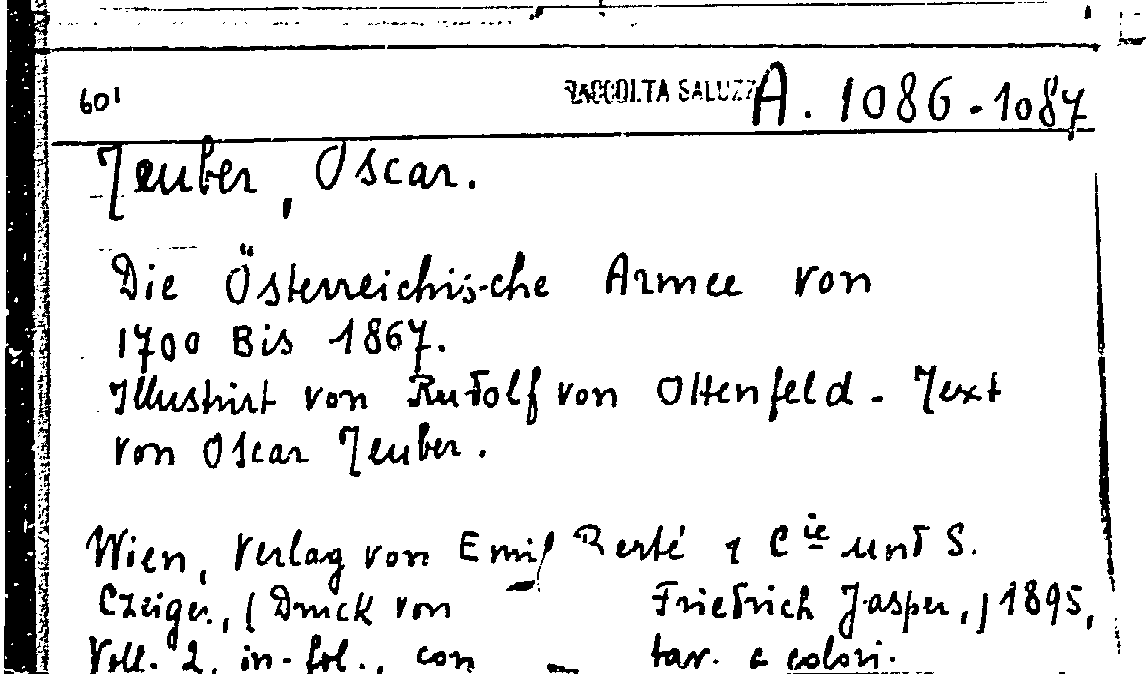 601 RACCOLTA SALUZZ A. 1086-1087
Teuber, Oscar.
Die Österreichische Armee von
1700 Bis 1867.
Illustrirt von Rudolf von Ottenfeld - Text
von Oscar Teuber.
Wien, Verlag von Emil Berté & Cie und S.
Czeiger, (Druck von Friedrich Jasper,) 1895,
Voll. 2, in-fol., con tav. a colori.